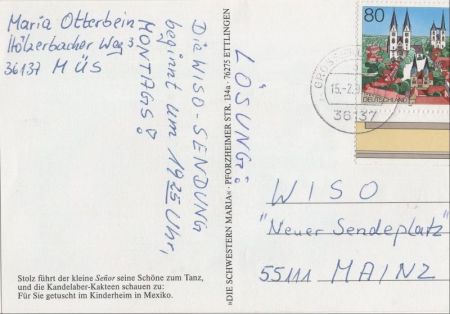 Maria Otterbein
Hölzerbacher Weg 3
36137 MÜS
LÖSUNG:
Die WISO-SENDUNG
beginnt um 1925 Uhr,
MONTAGS!
»DIE SCHWESTERN MARIA« · PFORZHEIMER STR. 134a · 76275 ETTLINGEN
80
DEUTSCHLAND
15.-2.9
36137
WISO
"Neuer Sendeplatz"
55111 MAINZ
Stolz führt der kleine Señor seine Schöne zum Tanz,
und die Kandelaber-Kakteen schauen zu:
Für Sie getuscht im Kinderheim in Mexiko.